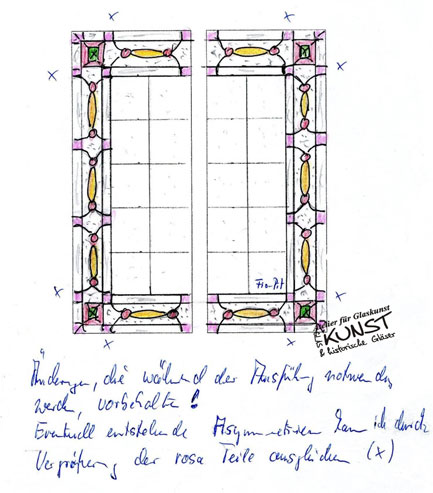 Atelier für Glaskunst
KUNST
& historische Gläser
Änderungen, die während der Ausführung notwendig
werden, vorbehalten!
Eventuell entstehende Asymmetrien kann ich durch
Vergrößerung der rosa Teile ausgleichen (x)